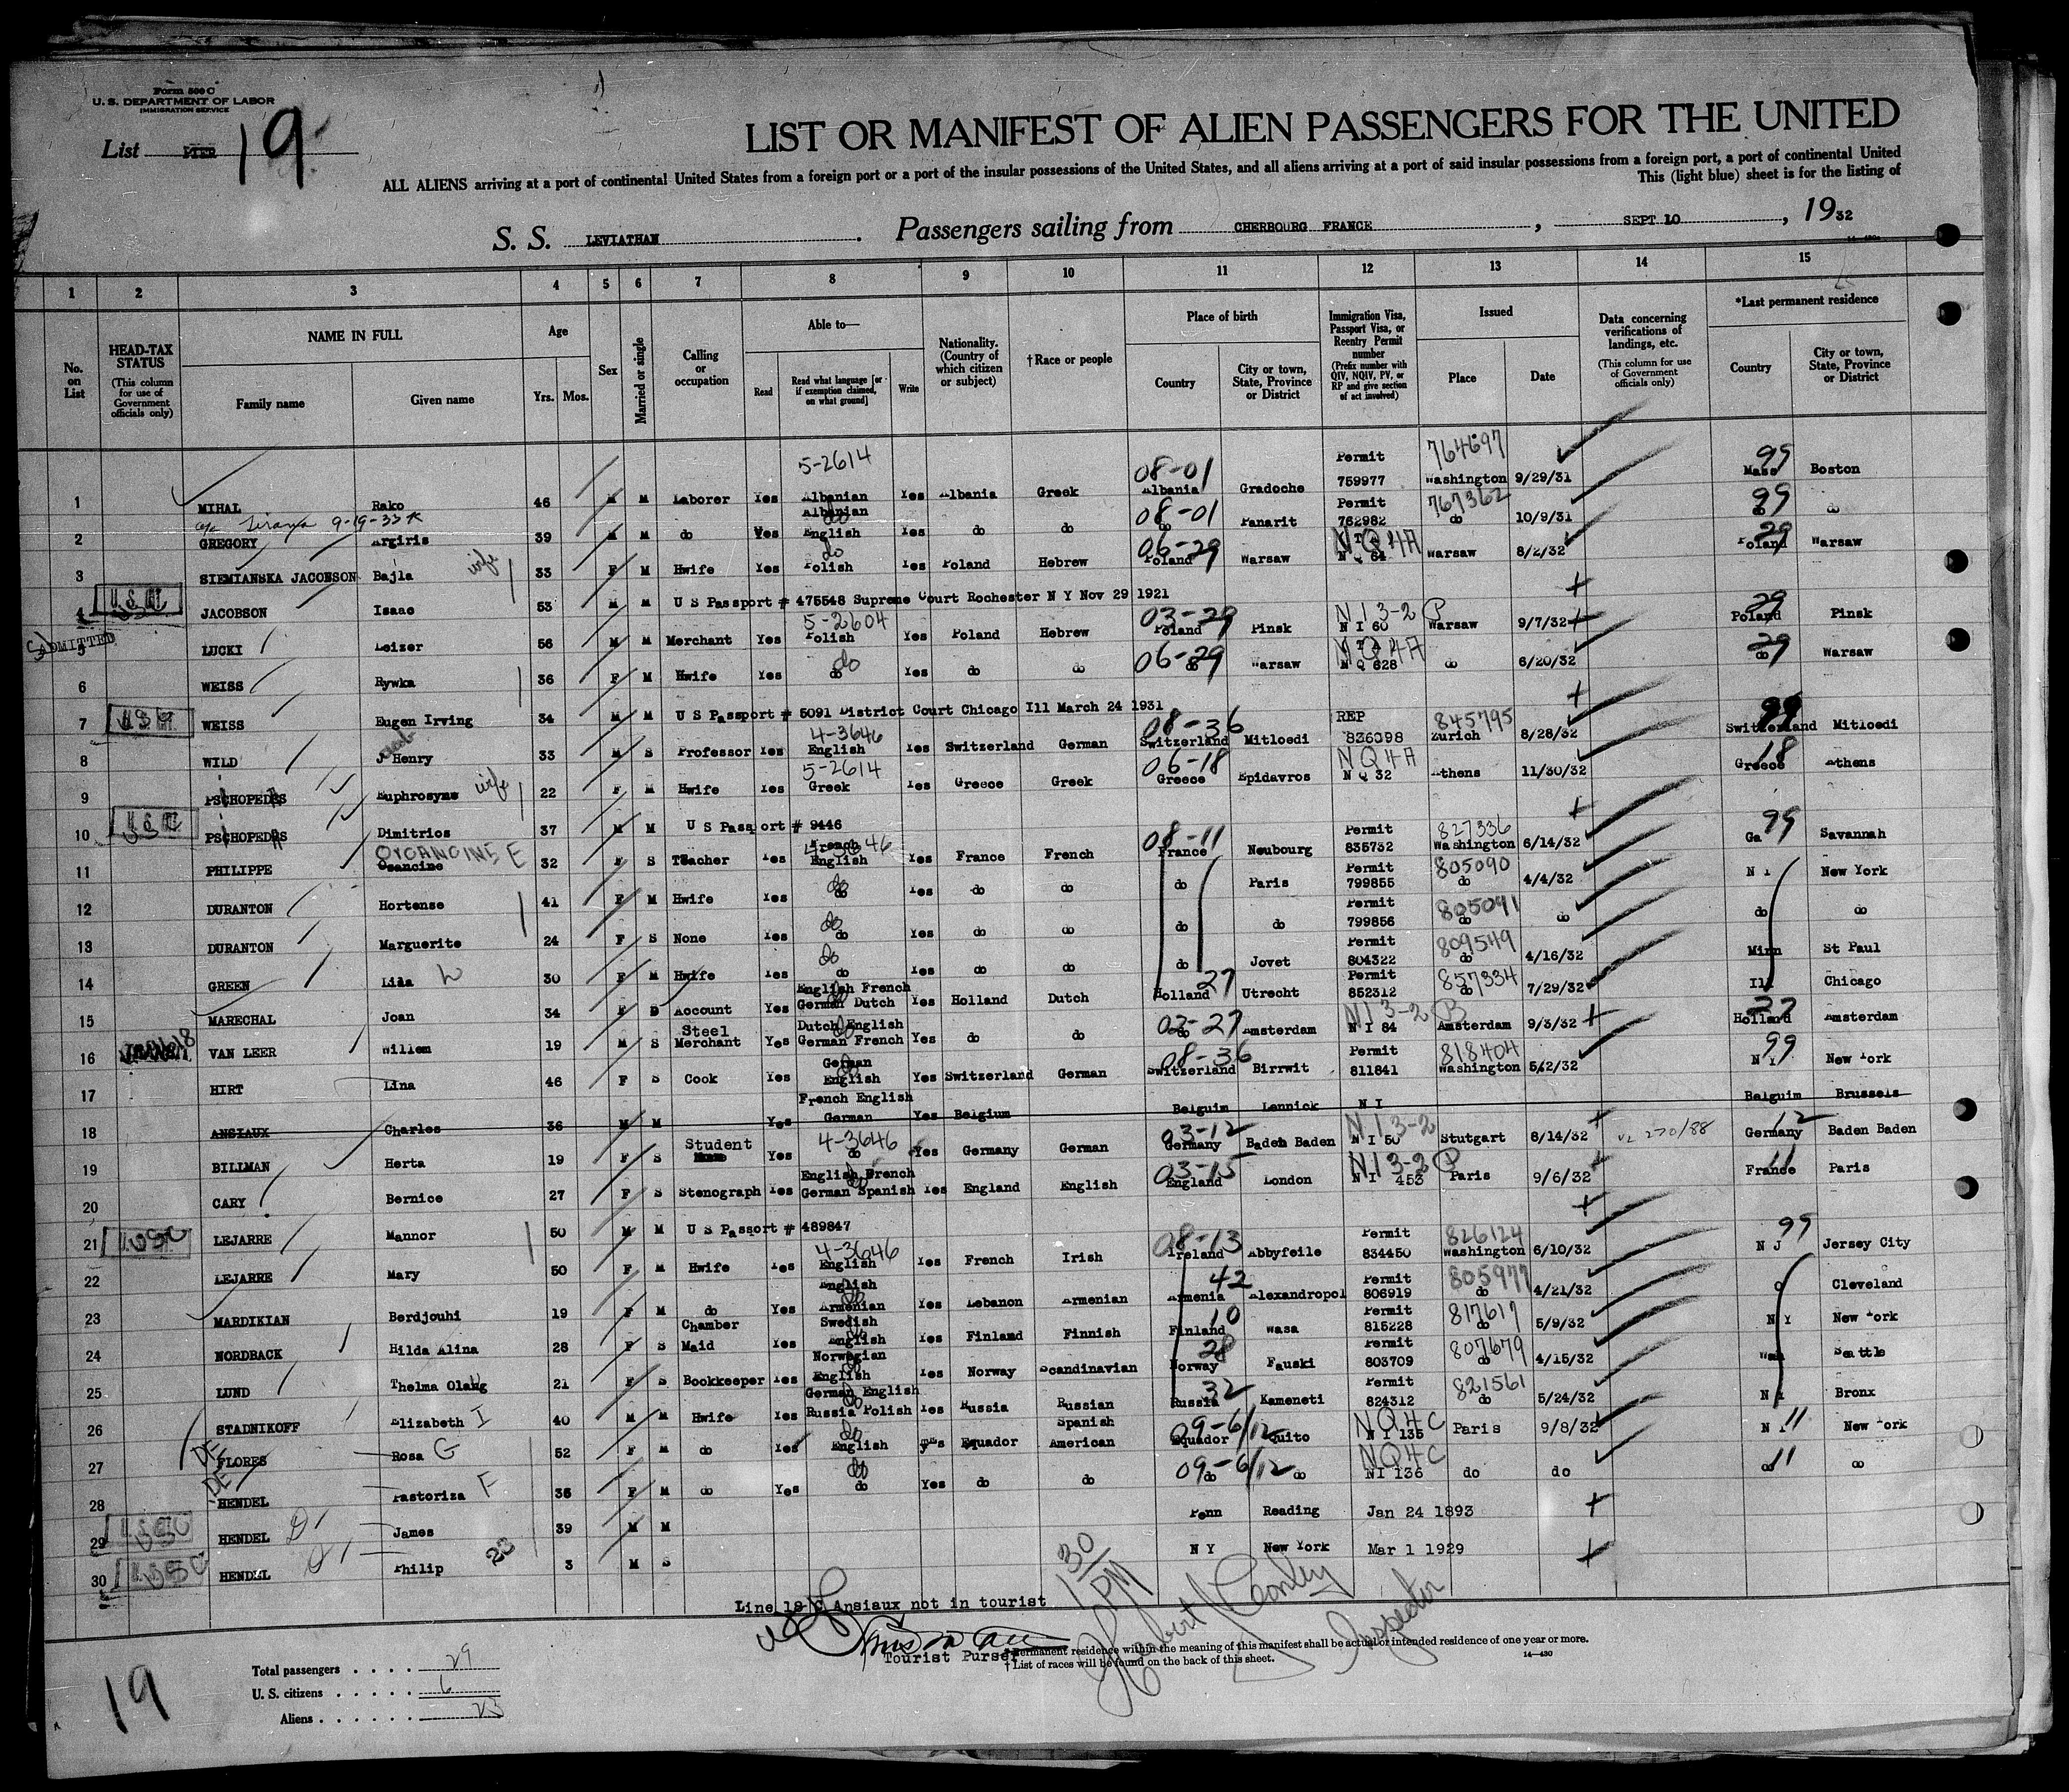 Form 500 C
U. S. DEPARTMENT OF LABOR
IMMIGRATION SERVICE
List 19
LIST OR MANIFEST OF ALIEN PASSENGERS FOR THE UNITED
ALL ALIENS arriving at a port of continental United States from a foreign port or a port of the insular possessions of the United States, and all aliens arriving at a port of said insular possessions from a foreign port, a port of continental United
This (light blue) sheet is for the listing of
S. S. LEVIATHAN. Passengers sailing from CHERBOURG FRANCE, SEPT 10, 1932
1 2 3 4 5 6 7 8 9 10 11 12 13 14 15
No. on List
HEAD-TAX STATUS (This column for use of Government officials only)
NAME IN FULL Family name Given name
Age Yrs. Mos.
Sex
Married or single
Calling or occupation
Able to— Read Read what language [or if exemption claimed, on what ground] Write
Nationality. (Country of which citizen or subject)
†Race or people
Place of birth Country City or town, State, Province or District
Immigration Visa, Passport Visa, or Reentry Permit number (Prefix number with QIV, NQIV, PV, or RP and give section of act involved)
Issued Place Date
Data concerning verifications of landings, etc. (This column for use of Government officials only)
*Last permanent residence Country City or town, State, Province or District
1 MIHAL Rako 46 M M Laborer Yes 5-2614 Albanian Yes Albania Greek 08-01 Albania Gradoche Permit 759977 764697 Washington 9/29/31 99 Mass Boston
2 GREGORY Argiris 39 M M do Yes Albanian English Yes do do 08-01 do Panarit Permit 762982 767362 do 10/9/31 99 do do
3 SIEMIANSKA JACOBSON Bajla wife 33 F M Hwife Yes do Polish Yes Poland Hebrew 06-29 Poland Warsaw NQ4A N Q 84 Warsaw 8/2/32 29 Poland Warsaw
4 JACOBSON Isaac 53 M M U S Passport # 475548 Supreme Court Rochester N Y Nov 29 1921
ADMITTED
5 LUCKI Leizer 56 M M Merchant Yes 5-2604 Polish Yes Poland Hebrew 03-29 Poland Pinsk NI 3-2 P N I 60 Warsaw 9/7/32 29 Poland Pinsk
6 WEISS Rywka 36 F M Hwife Yes do Yes do do 06-29 do Warsaw NQ4A N Q 628 do 6/20/32 29 do Warsaw
7 USC WEISS Eugen Irving 34 M M U S Passport # 5091 District Court Chicago Ill March 24 1931
8 WILD J Henry 33 M S Professor Yes 4-3646 English Yes Switzerland German 08-36 Switzerland Mitloedi REP 836098 845795 Zurich 8/28/32 99 Switzerland Mitloedi
9 PSCHOPEDAS Euphrosyme wife 22 F M Hwife Yes 5-2614 Greek Yes Greece Greek 06-18 Greece Epidavros NQ4A N Q 32 Athens 11/30/32 18 Greece Athens
10 USC PSCHOPEDAS Dimitrios 37 M M U S Passport # 9446
11 PHILIPPE Osancine 32 F S Teacher Yes French English 4-3646 Yes France French 08-11 France Neubourg Permit 835732 827336 Washington 6/14/32 99 Ga Savannah
12 DURANTON Hortense 41 F M Hwife Yes do Yes do do do Paris Permit 799855 805090 do 4/4/32 N Y New York
13 DURANTON Marguerite 24 F S None Yes do Yes do do do do Permit 799856 805091 do do do do
14 GREEN Lila 30 F M Hwife Yes do Yes do do do Jovet Permit 804322 809549 do 4/16/32 Minn St Paul
15 MARECHAL Joan 34 F S Account Yes English French German Dutch Yes Holland Dutch 27 Holland Utrecht Permit 852312 857334 do 7/29/32 Ill Chicago
16 VAN LEER Willem 19 M S Steel Merchant Yes Dutch English German French Yes do do 03-27 do Amsterdam NI 3-2 P N I 84 Amsterdam 9/3/32 27 Holland Amsterdam
17 HIRT Lina 46 F S Cook Yes German English Yes Switzerland German 08-36 Switzerland Birrwit Permit 811841 818404 Washington 5/2/32 99 N Y New York
18 ANSIAUX Charles 36 M M Yes French English German Yes Belgium Belguim Lennick N I Belguim Brussels
19 BILLMAN Herta 19 F S Student Yes 4-3646 do Yes Germany German 03-12 Germany Baden Baden NI 3-2 N I 50 Stutgart 8/14/32 12 Germany Baden Baden
20 CARY Bernice 27 F S Stenograph Yes English French German Spanish Yes England English 03-15 England London NI 3-2 P N I 453 Paris 9/6/32 11 France Paris
21 USC LEJARRE Mannor 50 M M U S Passort # 489847
22 LEJARRE Mary 50 F M Hwife Yes 4-3646 English Yes French Irish 08-13 Ireland Abbyfeile Permit 834450 826124 Washington 6/10/32 99 N J Jersey City
23 MARDIKIAN Berdjouhi 19 F M do Yes English Armenian Yes Lebanon Armenian 42 Armenia Alexandropol Permit 806919 805977 do 4/21/32 O Cleveland
24 NORDBACK Hilda Alina 28 F S Chamber Maid Yes Swedish English Yes Finland Finnish 10 Finland Wasa Permit 815228 817617 do 5/9/32 N Y New York
25 LUND Thelma Olaug 21 F S Bookkeeper Yes Norwegian English Yes Norway Scandinavian 28 Norway Fauski Permit 803709 807679 do 4/15/32 Wash Seattle
26 STADNIKOFF Elizabeth I 40 M M Hwife Yes German English Russia Polish Yes Russia Russian 32 Russia Kameneti Permit 824312 821561 do 5/24/32 N Y Bronx
27 DE FLORES Rosa G 52 F M do Yes do English Yes Equador Spanish American 09-6/12 Equador Quito NQ4C N I 135 Paris 9/8/32 11 N Y New York
28 DE HENDEL Pastoriza F 35 F M do Yes do Yes do do 09-6/12 do do NQ4C NI 136 do do 11 do do
29 USC HENDEL James 39 M M Penn Reading Jan 24 1893
30 USC HENDEL Philip 3 M S N Y New York Mar 1 1929
Line 18 C Ansiaux not in tourist
130 PM
Tourist Purser
Inspector
*Permanent residence within the meaning of this manifest shall be actual or intended residence of one year or more.
† List of races will be found on the back of this sheet.
14—430
19
Total passengers . . . . 29
U. S. citizens . . . . . 6
Aliens . . . . . . 23